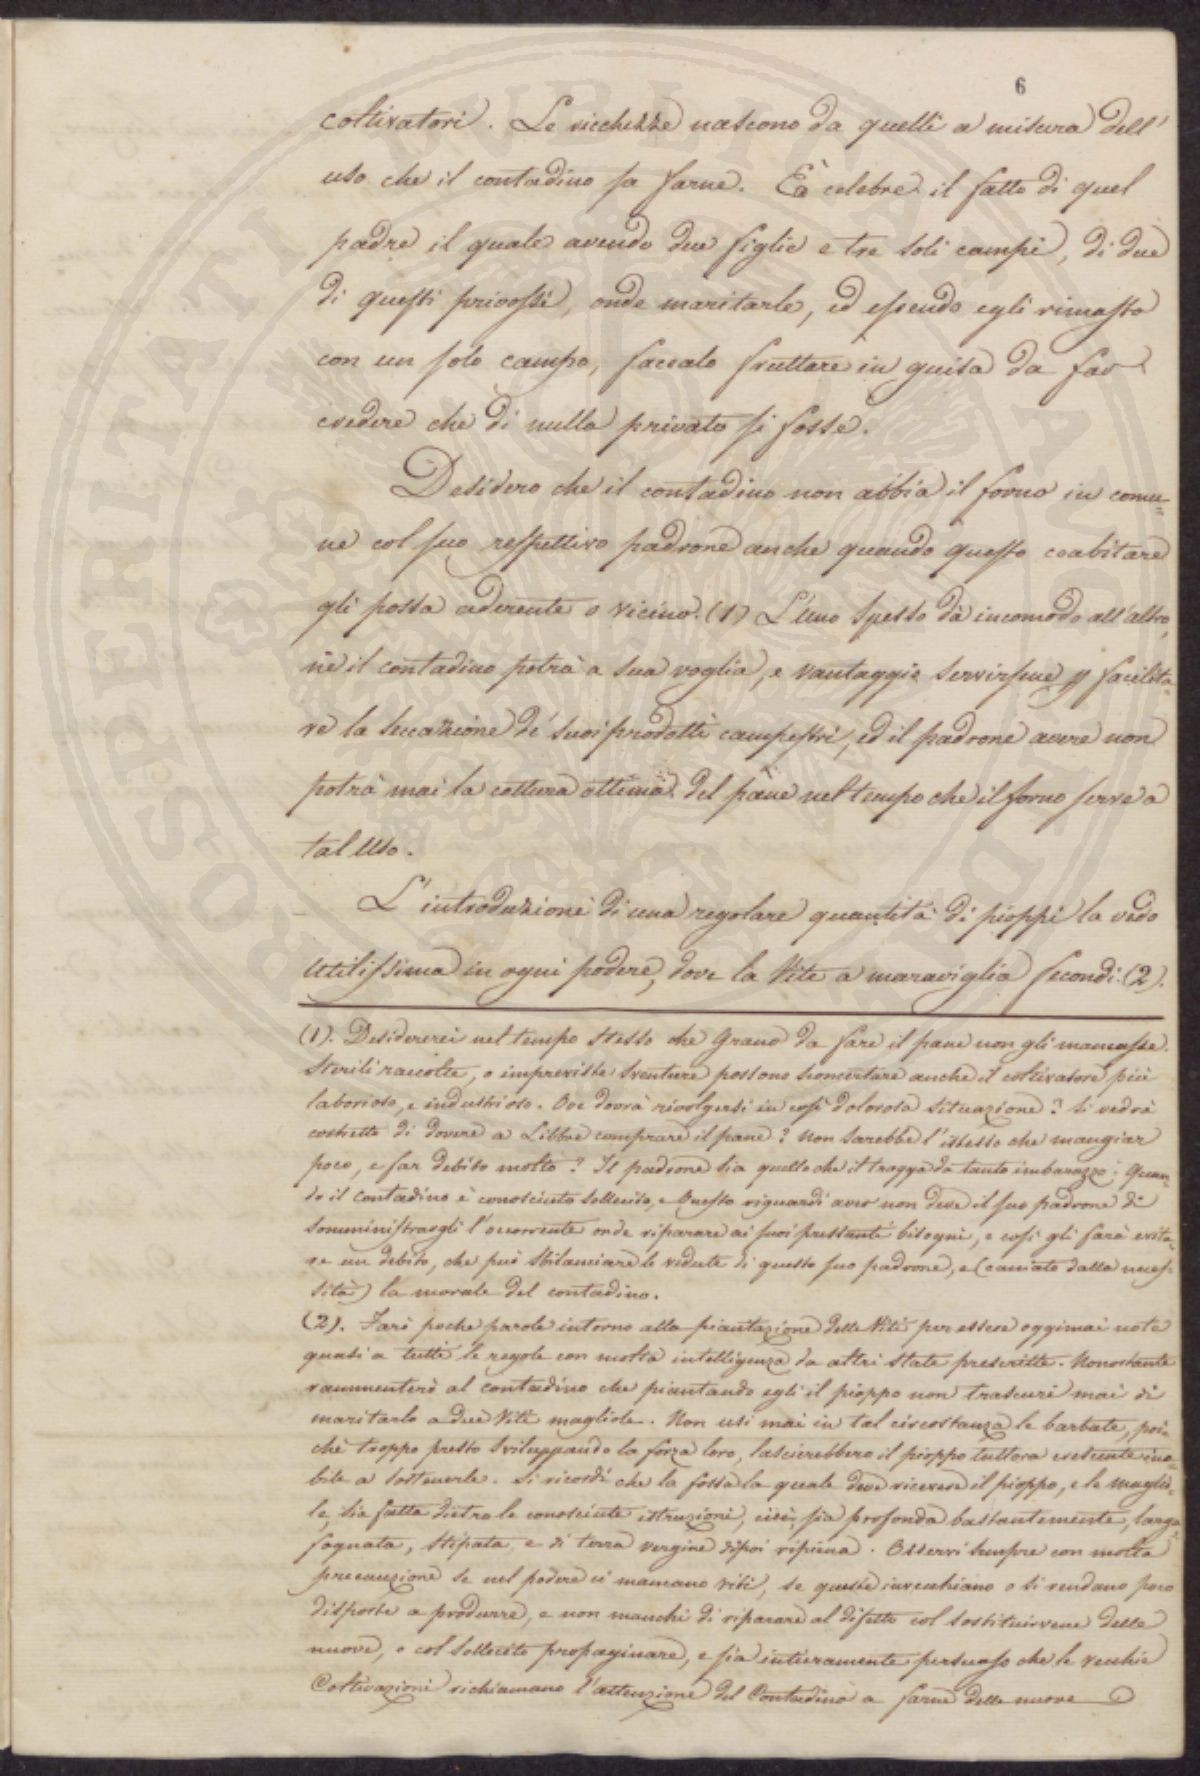 6
coltivatori. Le ricchezze nascono da quelli a misura dell'
uso che il contadino sa farne. È celebre il fatto di quel
padre il quale avendo due figlie e tre soli campi, di due
di questi privossi, onde maritarle, ed essendo egli rimasto
con un solo campo, facealo fruttare in guisa da far
credere che di nulla privato si fosse.
Desidero che il contadino non abbia il forno in comu=
ne col suo respettivo padrone anche quando questo coabitare
gli possa aderente o vicino. (1) L'uno spesso dà incomodo all'altro,
nè il contadino potrà a sua voglia, e vantaggio servirsene p facilita=
re la seccazione de' suoi prodotti campestri, ed il padrone avere non
potrà mai la cottura ottima del pane nel tempo che il forno serve a
tal uso.
L'introduzione di una regolare quantità di pioppi la vedo
utilissima in ogni podere, dove la Vite a maraviglia secondi. (2).
(1). Desidererei nel tempo stesso che Grano da fare il pane non gli mancasse.
Sterili raccolte, o impreviste sventure possono sconcertare anche il coltivatore più
laborioso, e industrioso. Ove dovrà rivolgersi in così dolorosa situazione? Si vedrà
costretto di dovere a Libbre comprare il pane? Non sarebbe l'istesso che mangiar
poco, e far debito molto? Il padrone sia quello che il tragga da tanto imbarazzo. Quan=
do il contadino è conosciuto sollecito, e Onesto riguardi aver non deve il suo padrone di
somministrargli l'occorrente onde riparare ai suoi pressanti bisogni, e così gli farà evita=
re un debito, che può sbilanciare le vedute di questo suo padrone, e (cambiato dalla neces=
sità) la morale del contadino.
(2). Farò poche parole intorno alla piantazione delle Viti per essere oggimai note
quasi a tutti le regole con molta intelligenza da altri state prescritte. Nonostante
rammenterò al contadino che piantando egli il pioppo non trascuri mai di
maritarlo a due Viti magliole. Non usi mai in tal circostanza le barbate, poi=
chè troppo presto sviluppando la forza loro, lascierebbero il pioppo tuttora crescente ina=
bile a sostenerle. Si ricordi che la fossa la quale deve ricevere il pioppo, e le maglio=
le, sia fatta dietro le conosciute istruzioni, cioè, sia profonda bastantemente, larga,
fognata, stipata, e di terra vergine dipoi ripiena. Osservi sempre con molta
precauzione se nel podere ci mancano viti, se queste invecchiano o si rendano poco
disposte a produrre, e non manchi di riparare al difetto col sostituirvene delle
nuove, o col sollecito propaginare, e sia interamente persuaso che le vecchie
Coltivazioni richiamano l'attenzione del Contadino a farne delle nuove